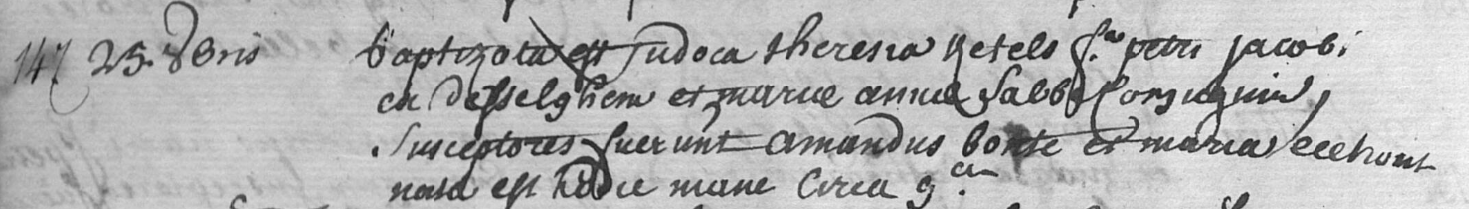 147 25. 8bris baptizata est judoca theresia Ketels f.a petri jacobi
ex desselghem et mariæ annæ Sabbe conjugum,
Susceptores fuerunt amandus bonte et maria
nata est hodie mane circa 9.am